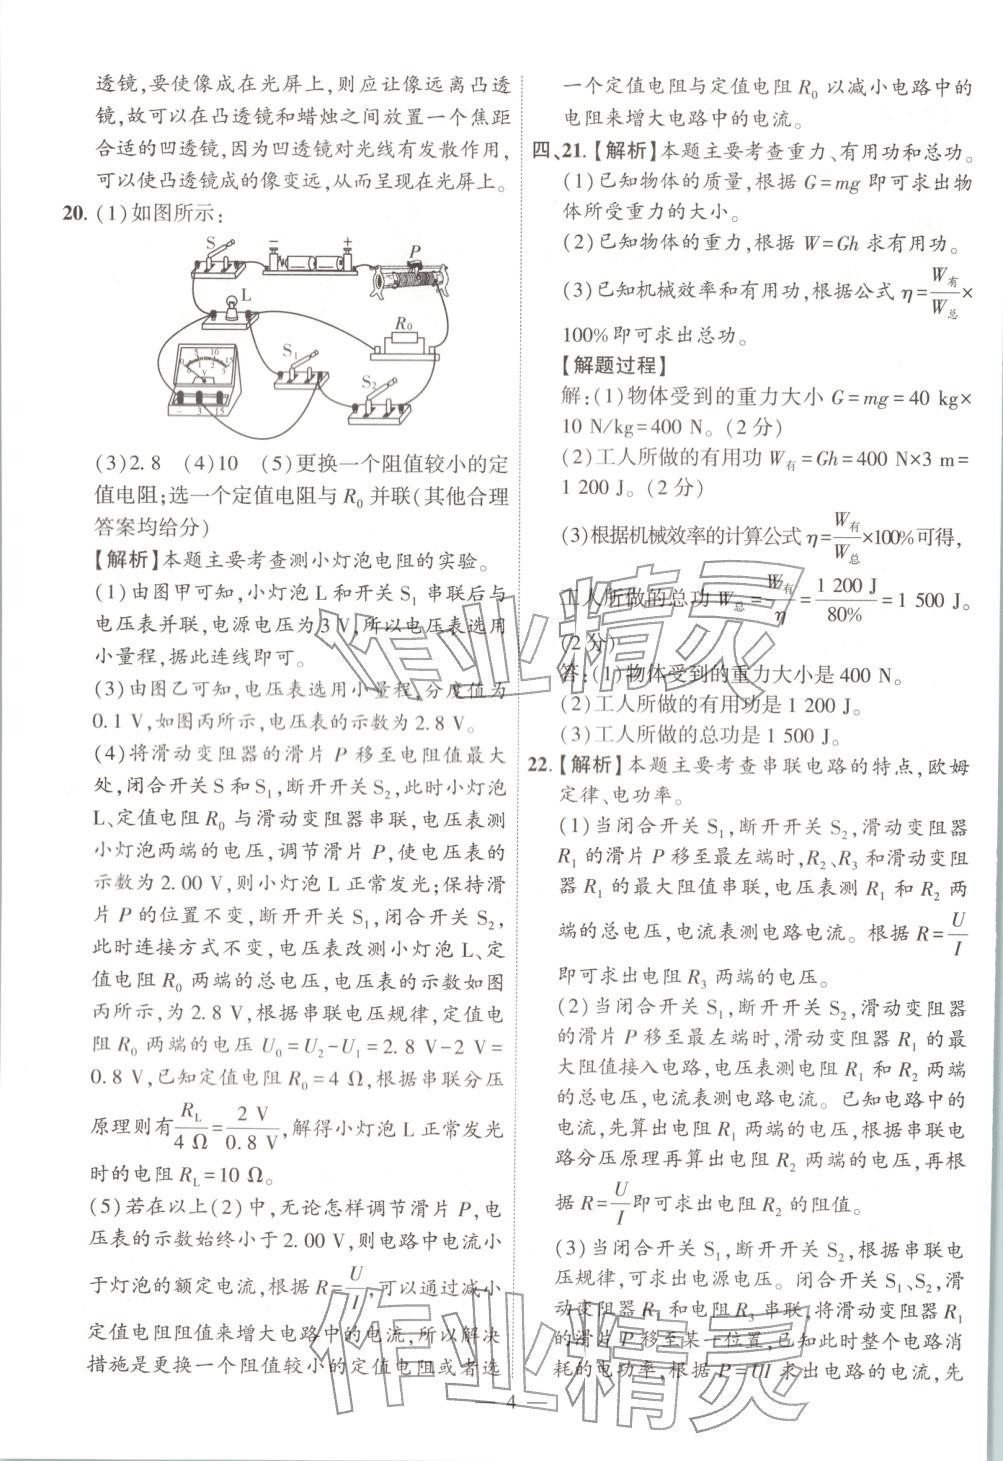 透镜,要使像成在光屏上,则应让像远离凸透
镜,故可以在凸透镜和蜡烛之间放置一个焦距
合适的凹透镜,因为凹透镜对光线有发散作用,
可以使凸透镜成的像变远,从而呈现在光屏上。
20. (1)如图所示:
S
P
L
R₀
S₁
S₂
(3)2.8 (4)10 (5)更换一个阻值较小的定
值电阻;选一个定值电阻与 R₀ 并联(其他合理
答案均给分)
【解析】本题主要考查测小灯泡电阻的实验。
(1)由图甲可知,小灯泡 L 和开关 S₁ 串联后与
电压表并联,电源电压为 3 V,所以电压表选用
小量程,据此连线即可。
(3)由图乙可知,电压表选用小量程,分度值为
0.1 V,如图丙所示,电压表的示数为 2.8 V。
(4)将滑动变阻器的滑片 P 移至电阻值最大
处,闭合开关 S 和 S₁,断开开关 S₂,此时小灯泡
L、定值电阻 R₀ 与滑动变阻器串联,电压表测
小灯泡两端的电压,调节滑片 P,使电压表的
示数为 2.00 V,则小灯泡 L 正常发光;保持滑
片 P 的位置不变,断开开关 S₁,闭合开关 S₂,
此时连接方式不变,电压表改测小灯泡 L、定
值电阻 R₀ 两端的总电压,电压表的示数如图
丙所示,为 2.8 V,根据串联电压规律,定值电
阻 R₀ 两端的电压 U₀=U₂-U₁=2.8 V-2 V=
0.8 V,已知定值电阻 R₀=4 Ω,根据串联分压
原理则有 R_L/4 Ω=2 V/0.8 V,解得小灯泡 L 正常发光
时的电阻 R_L=10 Ω。
(5)若在以上(2)中,无论怎样调节滑片 P,电
压表的示数始终小于 2.00 V,则电路中电流小
于灯泡的额定电流,根据 R=U/I,可以通过减小
定值电阻阻值来增大电路中的电流,所以解决
措施是更换一个阻值较小的定值电阻或者选
一个定值电阻与定值电阻 R₀ 以减小电路中的
电阻来增大电路中的电流。
四、21.【解析】本题主要考查重力、有用功和总功。
(1)已知物体的质量,根据 G=mg 即可求出物
体所受重力的大小。
(2)已知物体的重力,根据 W=Gh 求有用功。
(3)已知机械效率和有用功,根据公式 η=W有/W总×
100%即可求出总功。
【解题过程】
解:(1)物体受到的重力大小 G=mg=40 kg×
10 N/kg=400 N。(2 分)
(2)工人所做的有用功 W有=Gh=400 N×3 m=
1 200 J。(2 分)
(3)根据机械效率的计算公式 η=W有/W总×100%可得,
工人所做的总功 W总=W有/η=1 200 J/80%=1 500 J。
(2 分)
答:(1)物体受到的重力大小是 400 N。
(2)工人所做的有用功是 1 200 J。
(3)工人所做的总功是 1 500 J。
22.【解析】本题主要考查串联电路的特点,欧姆
定律、电功率。
(1)当闭合开关 S₁,断开开关 S₂,滑动变阻器
R₁ 的滑片 P 移至最左端时,R₂、R₃ 和滑动变阻
器 R₁ 的最大阻值串联,电压表测 R₁ 和 R₂ 两
端的总电压,电流表测电路电流。根据 R=U/I
即可求出电阻 R₃ 两端的电压。
(2)当闭合开关 S₁,断开开关 S₂,滑动变阻器
的滑片 P 移至最左端时,滑动变阻器 R₁ 的最
大阻值接入电路,电压表测电阻 R₁ 和 R₂ 两端
的总电压,电流表测电路电流。已知电路中的
电流,先算出电阻 R₁ 两端的电压,根据串联电
路分压原理再算出电阻 R₂ 两端的电压,再根
据 R=U/I即可求出电阻 R₂ 的阻值。
(3)当闭合开关 S₁,断开开关 S₂,根据串联电
压规律,可求出电源电压。闭合开关 S₁、S₂,滑
动变阻器 R₁ 和电阻 R₃ 串联,将滑动变阻器 R₁
的滑片 P 移至某一位置,已知此时整个电路消
耗的电功率,根据 P=UI 求出电路的电流,先
4
作业精灵
作业精灵